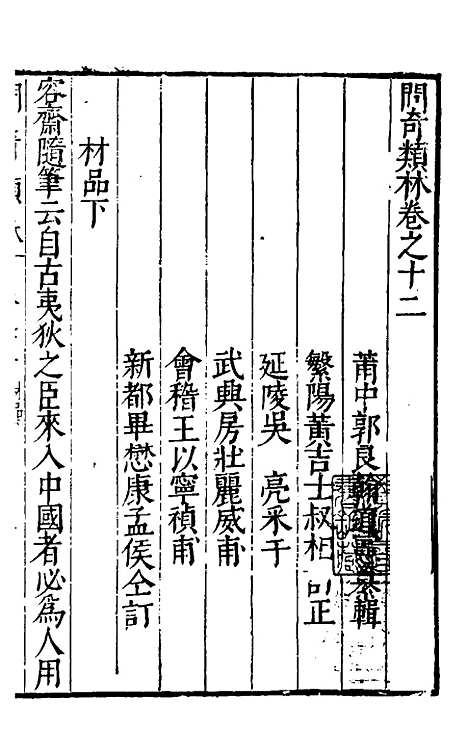 問奇類林卷之十二
莆中郭良翰道憲輯
繁陽黃吉士叔相訂正
延陵吳 亮采于
武興房壯麗威甫
會稽王以寧禎甫
新都畢懋康孟侯仝訂
材品下
容齋隨筆云自古夷狄之臣來入中國者必爲人用